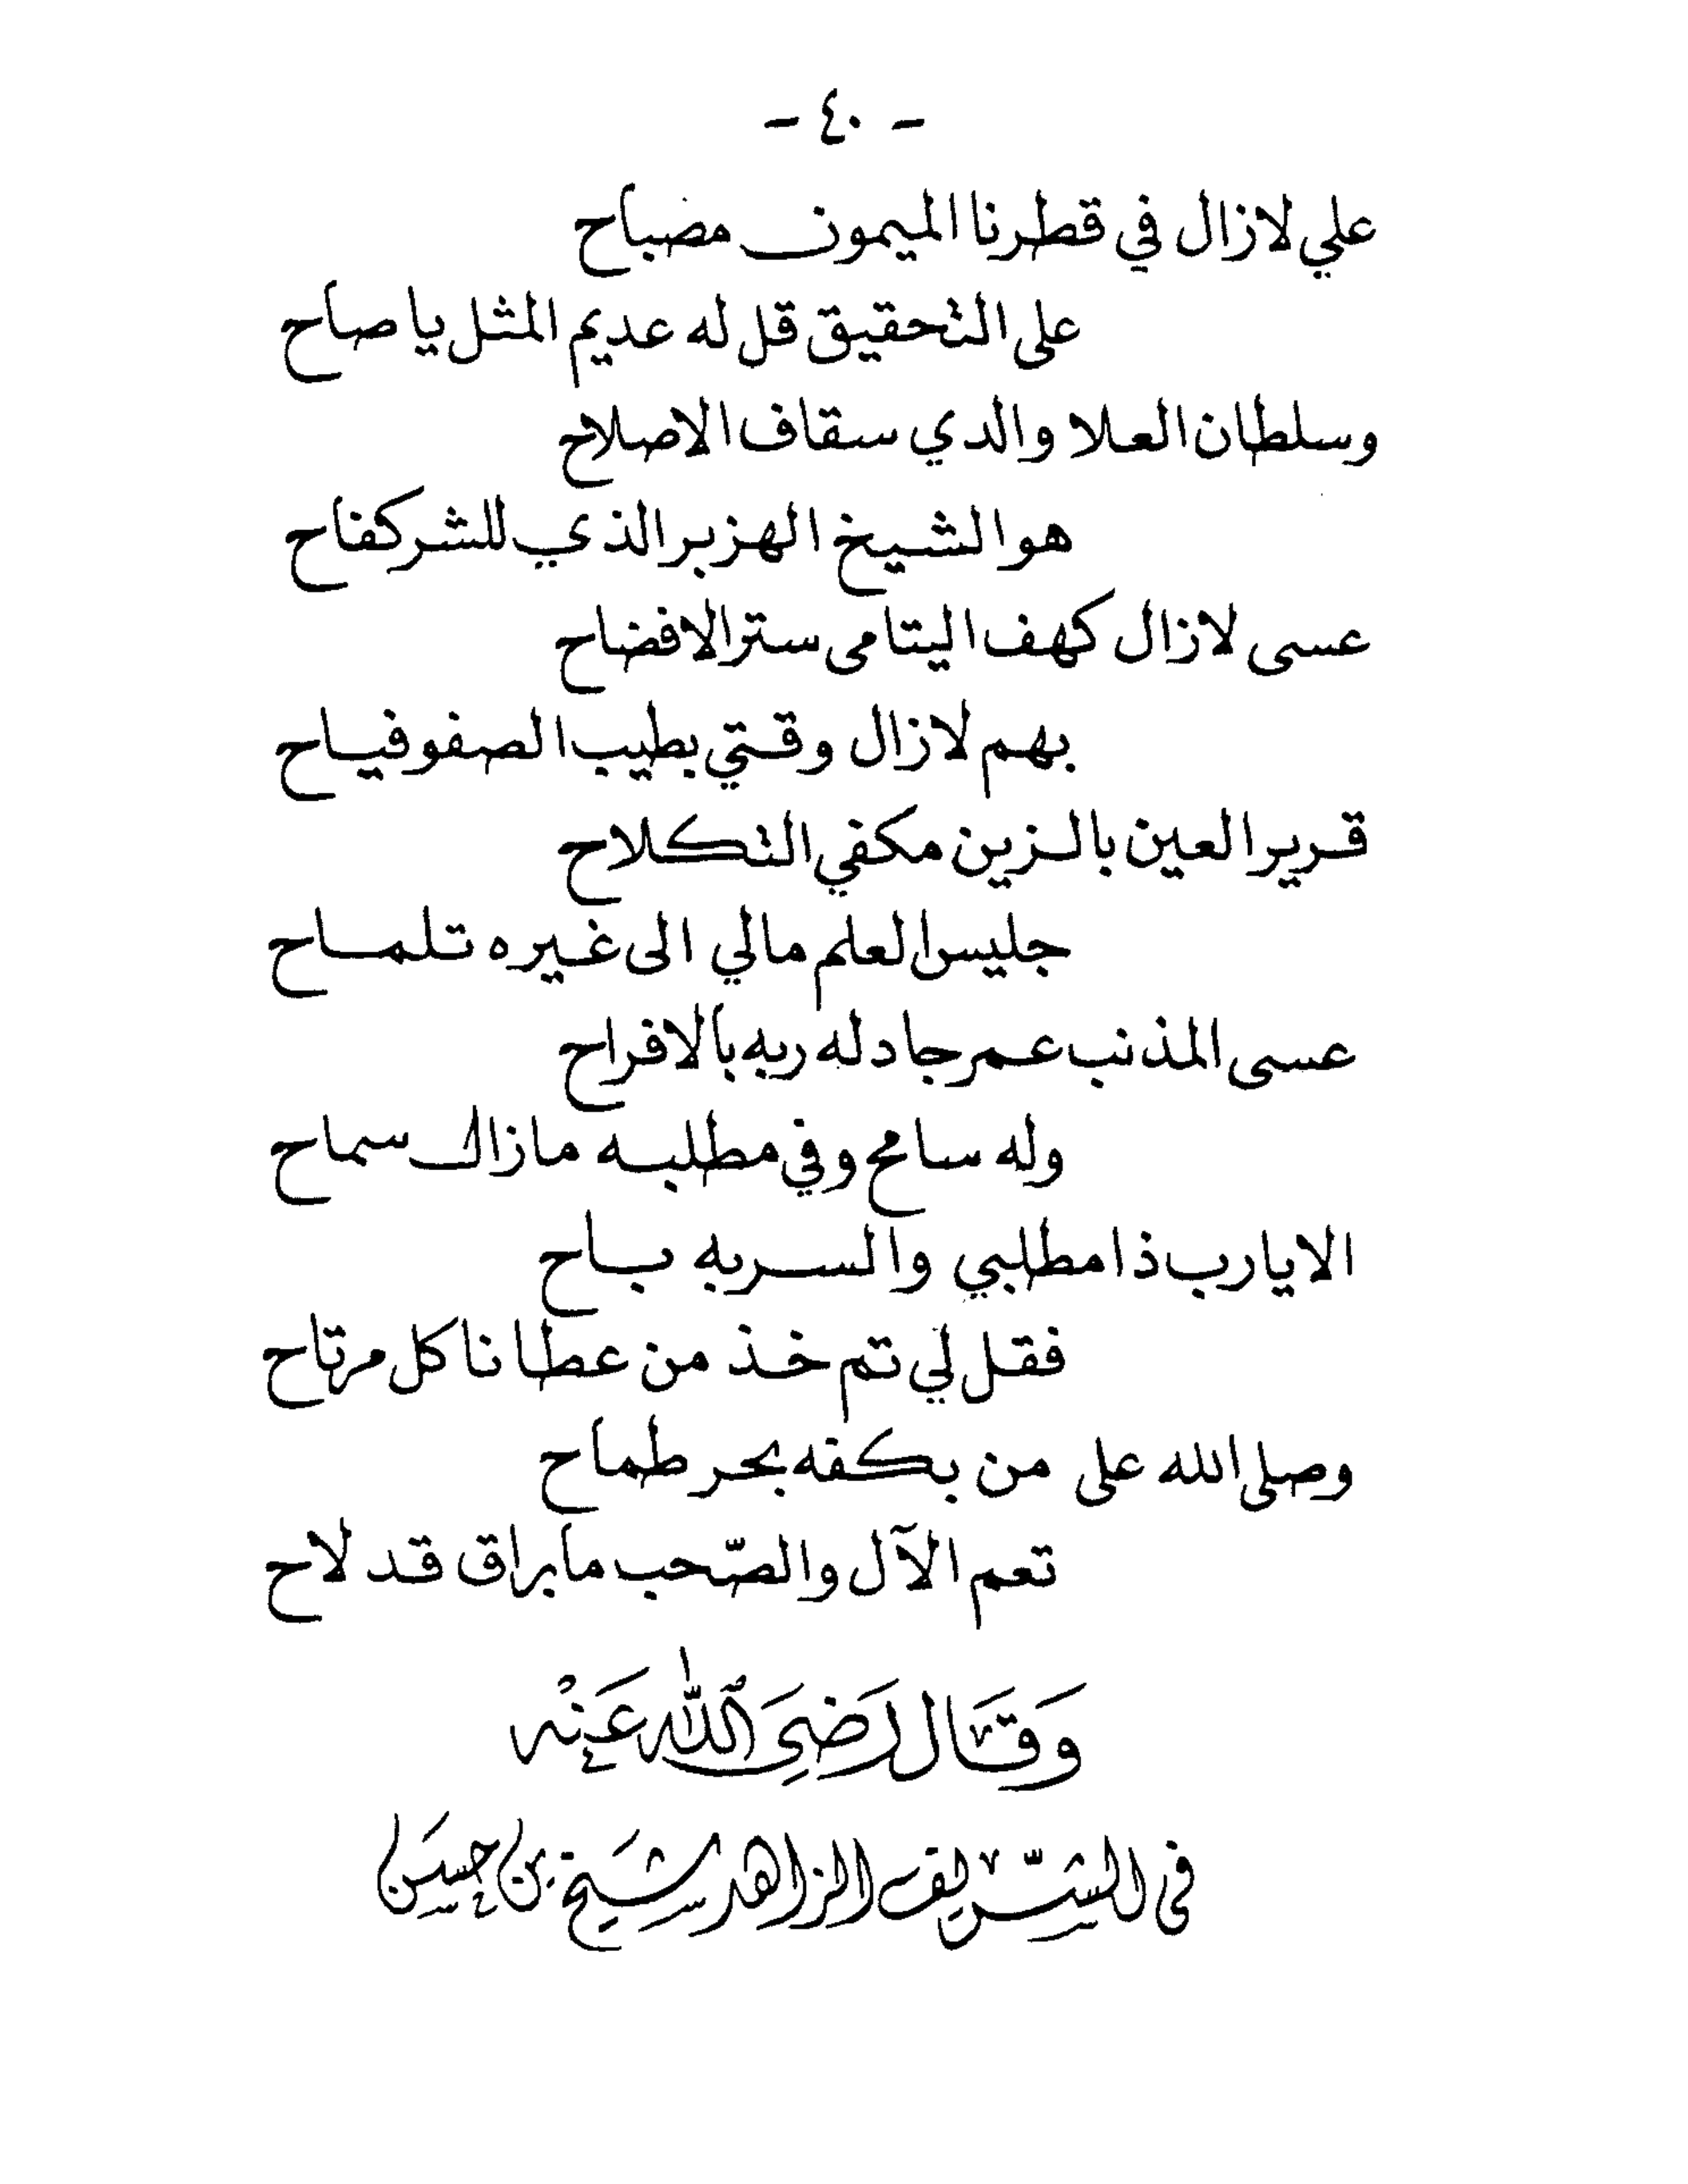 - ٤٠ -
علي لازال في قطرنا الميمون مصباح
على التحقيق قل له عديم المثل يا صاح
وسلطان العلا والدي سقاف الاصلاح
هو الشيخ الهزبر الذي للشر كفاح
عسى لازال كهف اليتامى ستر الافضاح
بهم لازال وقتي بطيب الصفو فياح
قرير العين بالزين مكفي التكلاح
جليس العلم مالي الى غيره تلماح
عسى المذنب عمر جادله ربه بالافراح
وله سامح وفي مطلبه مازال سماح
الا يارب ذا مطلبي والسر به باح
فقل لي تم خذ من عطانا كل مرتاح
وصلى الله على من بكفه بحر طماح
تعم الآل والصّحب ما براق قد لاح
وَقَال رَضِيَ اللّٰه عَنْه
في الشّريف الزاهد شَيخ بن حسَين